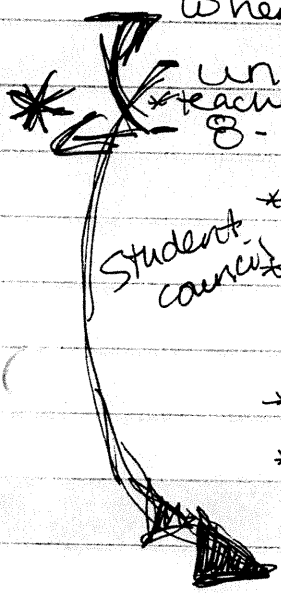 Whe
un
*teach
8-
*
Student
council*
*
*